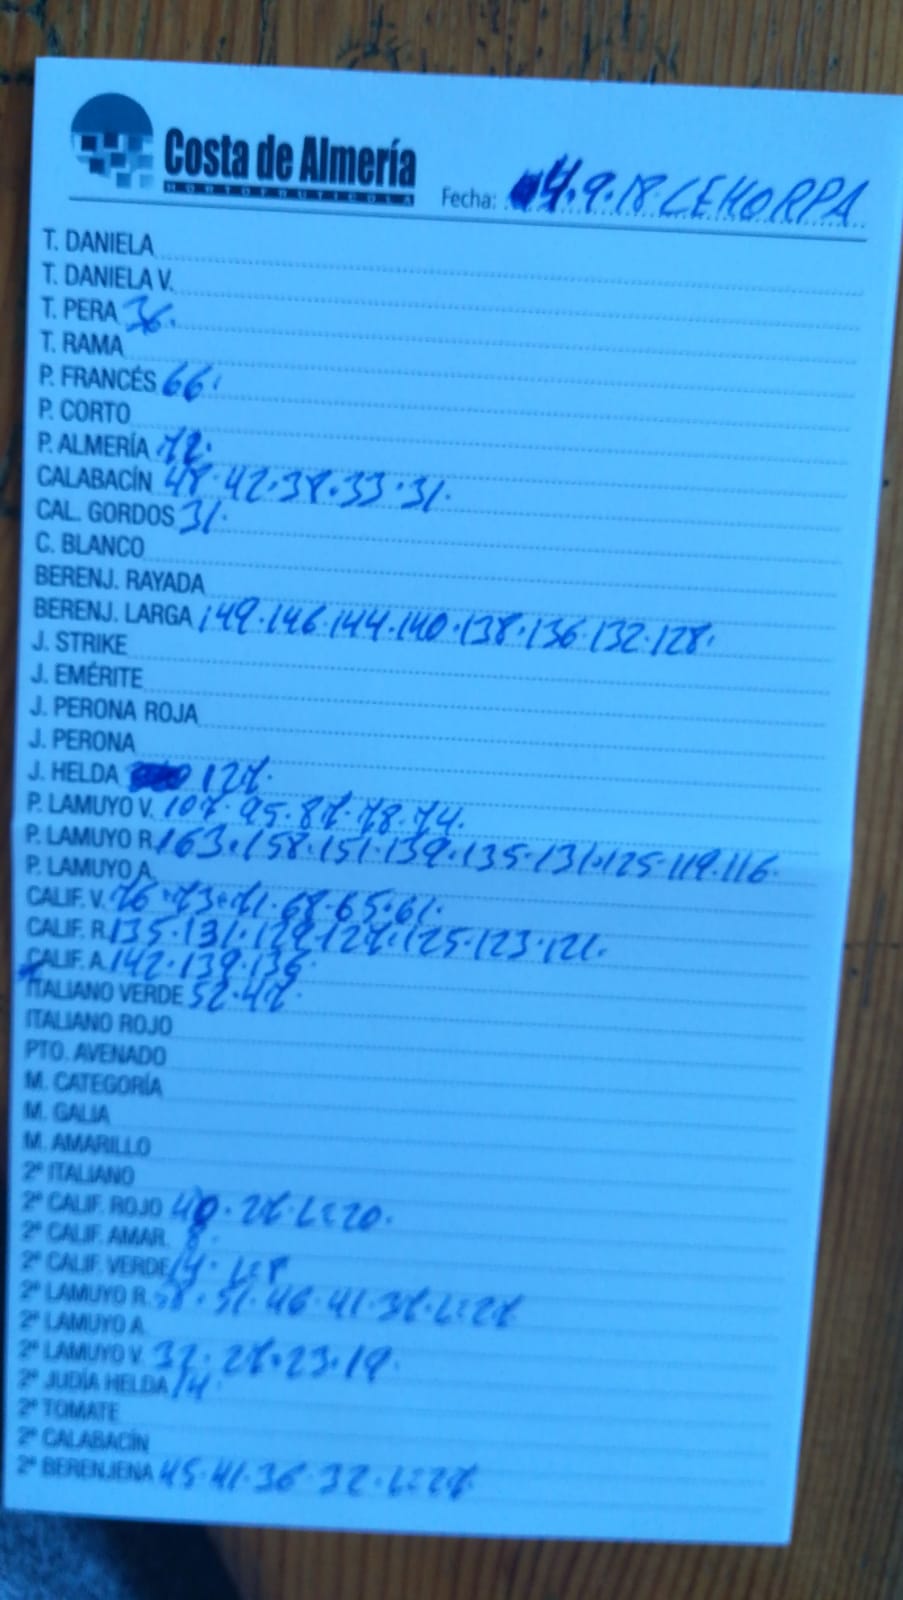 Costa de Almería
HORTOFRUTICOLA
Fecha: 4.9.18 CEHORPA
T. DANIELA
T. DANIELA V.
T. PERA 36.
T. RAMA
P. FRANCÉS 66.
P. CORTO
P. ALMERÍA 72.
CALABACÍN 48.42.38.33.31.
CAL. GORDOS 31.
C. BLANCO
BERENJ. RAYADA
BERENJ. LARGA 149.146.144.140.138.136.132.128.
J. STRIKE
J. EMÉRITE
J. PERONA ROJA
J. PERONA
J. HELDA 127.
P. LAMUYO V. 107.95.87.78.74.
P. LAMUYO R. 163.158.151.139.135.131.125.119.116.
P. LAMUYO A.
CALIF. V. 76.73.71.68.65.61.
CALIF. R. 135.131.129.127.125.123.121.
CALIF. A. 142.139.136.
ITALIANO VERDE 52.47.
ITALIANO ROJO
PTO. AVENADO
M. CATEGORÍA
M. GALIA
M. AMARILLO
2ª ITALIANO
2ª CALIF. ROJO 40.27.L:20.
2ª CALIF. AMAR. 8.
2ª CALIF. VERDE 14.L:8
2ª LAMUYO R. 58.51.46.41.37.L:27
2ª LAMUYO A.
2ª LAMUYO V. 32.27.23.19.
2ª JUDÍA HELDA 14.
2ª TOMATE
2ª CALABACÍN
2ª BERENJENA 45.41.36.32.L:27